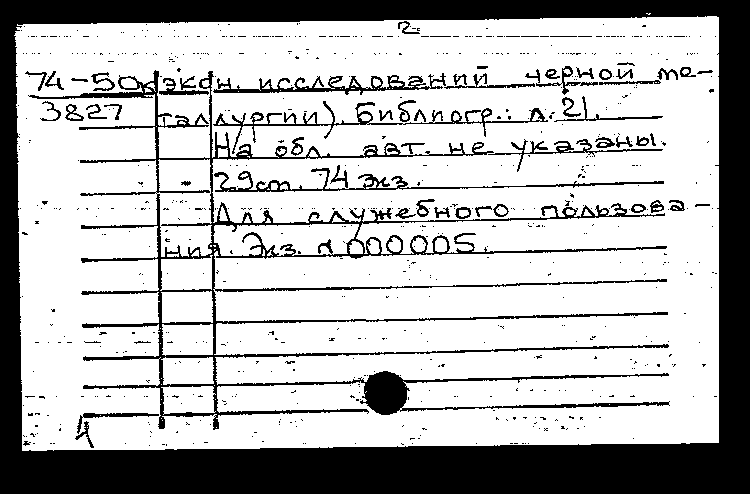 2
74-50к экон. исследований черной ме-
3827 таллургии). Библиогр.: л. 21.
На обл. авт. не указаны.
29cm. 74 экз.
Для служебного пользова-
ния. Экз. № 000005.